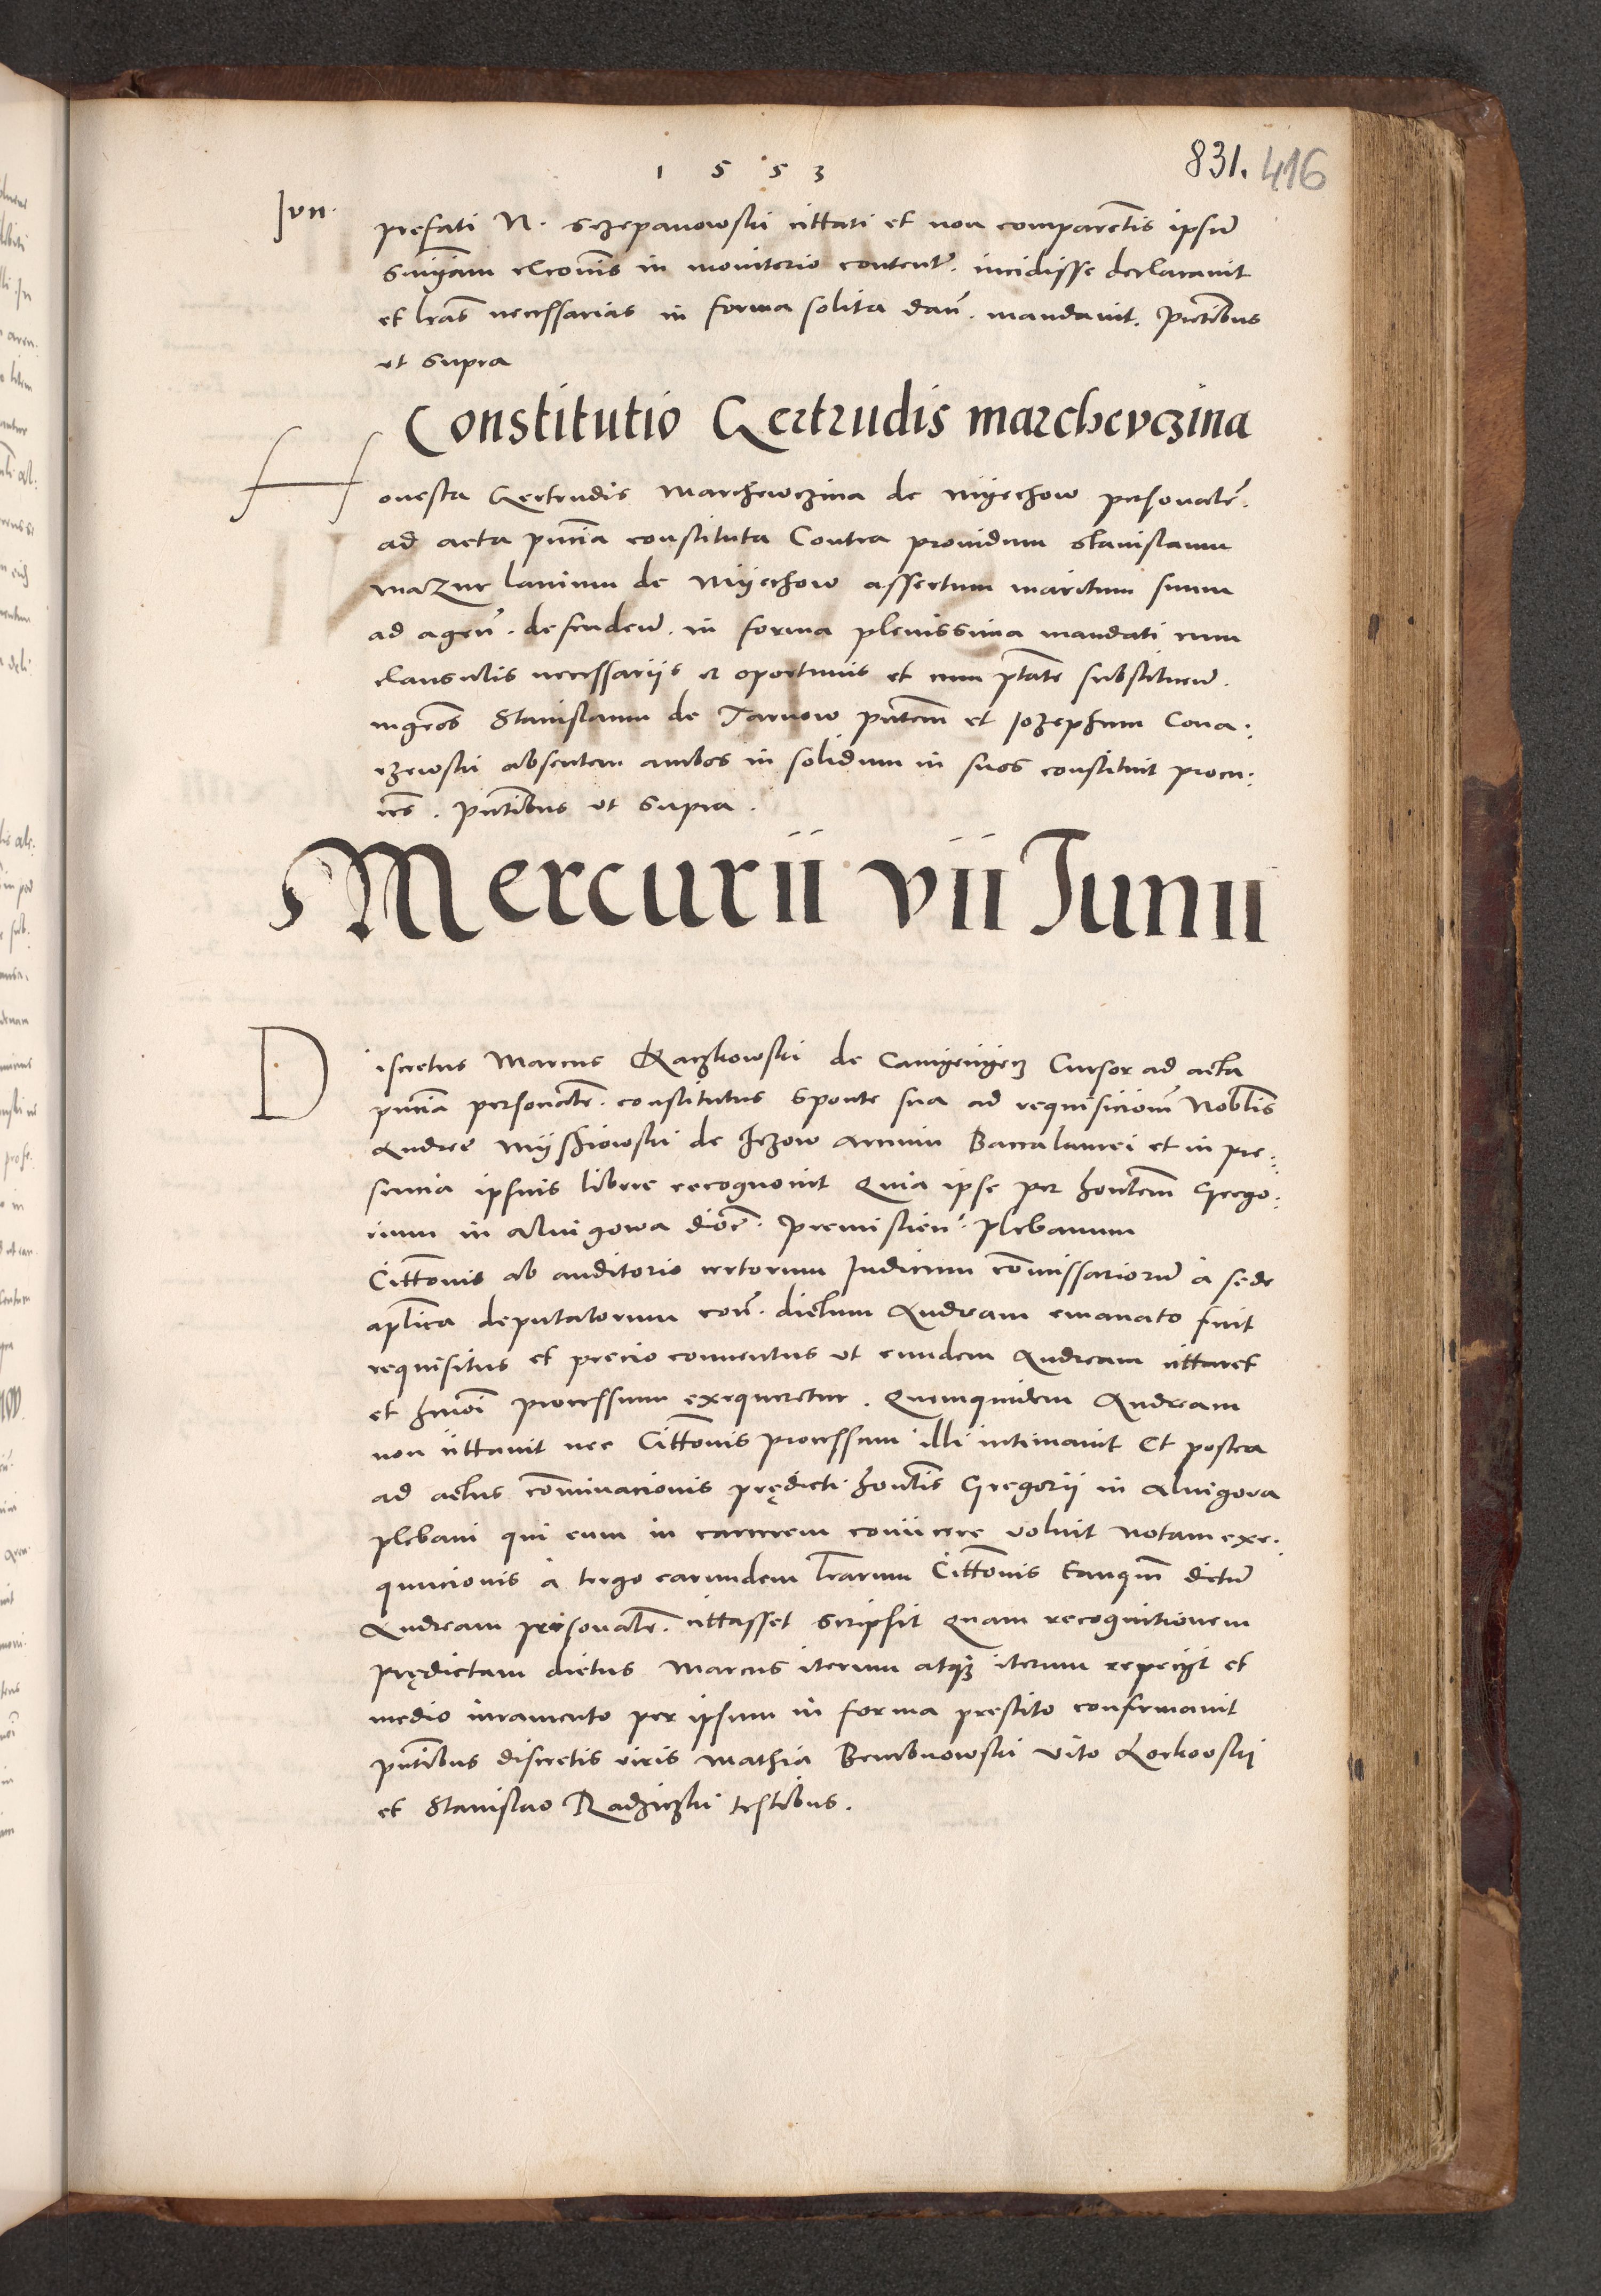 1 5 5 3
831. 416
Jun.
prefati N. Sczepanowski cittati et non comparentis ipsum
in moniterio content. incidisse declaravit
et lras necessarias in forma solita dan. mandavit. pntibus
ut supra
Constitutio Gertrudis marchevczina
Honesta Gertrudis Marchewczina de Myechow personale.
ad acta pntia constituta Contra providum Stanislaum
Mazur lanium de Myechow assertum maritum suum
ad agen. defenden. in forma plenissima mandati cum
clausulis necessariis et oportunis et cum ptate substituen.
mgros Stanislaum de Tarnow pntem et Jozephum Cona:
rzewski absentem ambos in solidum in suos constituit procu:
res. pntibus ut supra.
Mercurii vii Junii
Discretus Marcus Raczkowski de Camyenyecz Cursor ad acta
pntia personale. constitutus sponte sua ad requisicionem Nobilis
Andree Myskowski de artium Baccalaurei et in pre:
sencia ipsius libere recognovit Quia ipse per honlem Grego:
rium in Alvigowa dioc. Premislien. plebanum
Cittonis ab auditorio certorum Judicum comissariorum a sede
aplica deputatorum con. dictum Andream emanato fuit
requisitus et precio conventus ut eundem Andream cittaret
et hmoi processum exequeretur. Quemquidem Andream
non cittavit nec Cittonis processum illi intimavit Et postea
ad actus cominacionis prędicti honlis Gregorii in Alvigova
plebani qui eum in carcerem coniicere voluit notam exe:
qucionis a tergo earundem lrarum Cittonis tanqm dictum
Andream personale. cittasset scripsit Quam recognitionem
prędictam dictus Marcus iterum atq3 iterum repecyt et
medio iuramento per ipsum in forma prestito confirmavit
pntibus discretis viris Mathia Bembnowski Vito Lorkovski
et Stanislao Radziczki testibus.